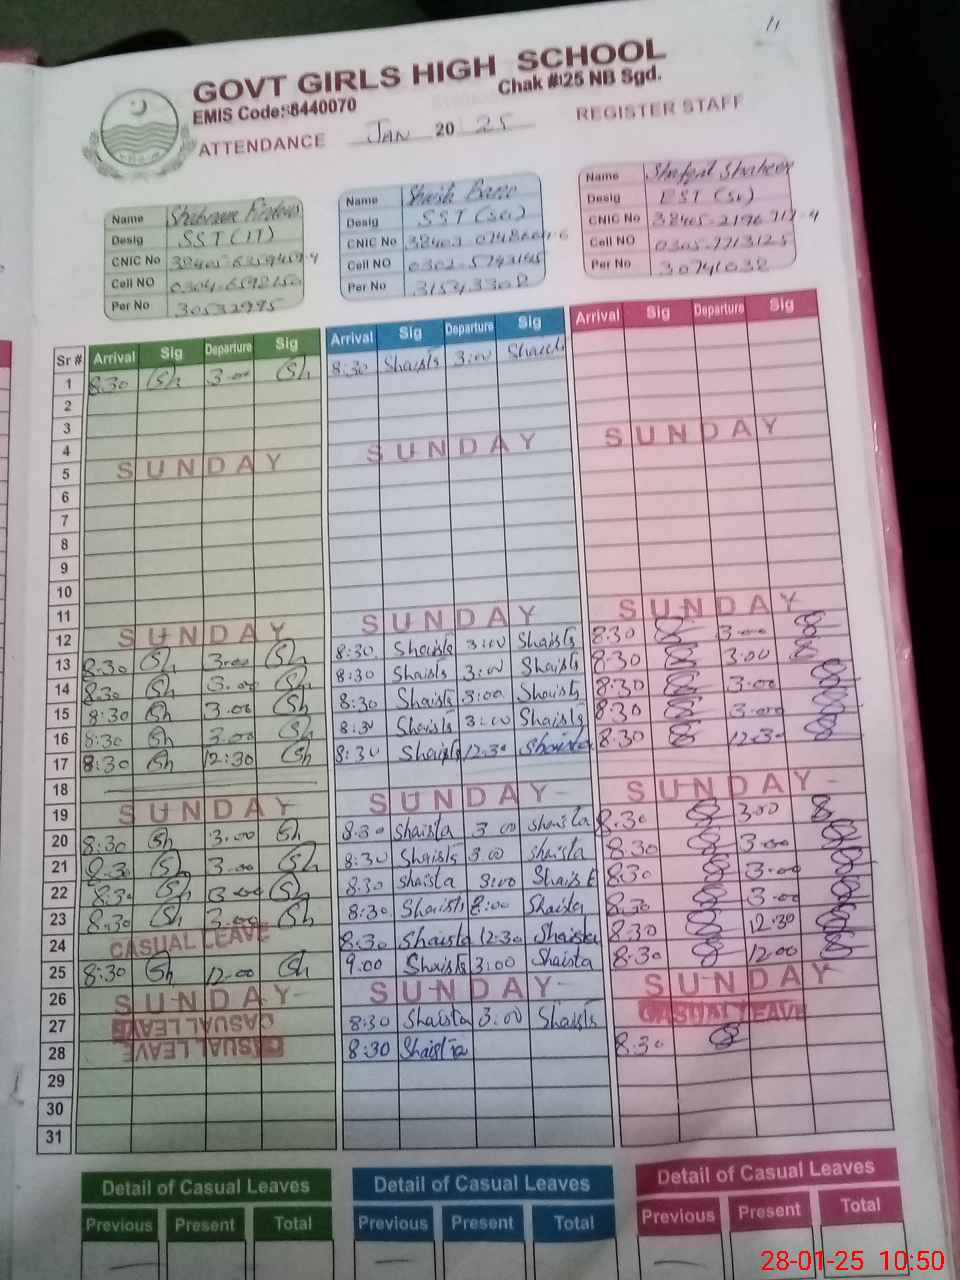 11
GOVT GIRLS HIGH SCHOOL
EMIS Code:-8440070 Chak #125 NB Sgd.
ATTENDANCE JAN 20 25 REGISTER STAFF
Name
Desig SST (IT)
CNIC No
Cell NO
Per No 30532995
Name
Desig SST (Sci)
CNIC No
Cell NO
Per No
Name Shaheen
Desig EST (Sci)
CNIC No
Cell NO 0305-7713125
Per No 30741032
Sr # Arrival Sig Departure Sig Arrival Sig Departure Sig Arrival Sig Departure Sig
1 8:30 Sh 3:00 Sh 8:30 Shaista 3:00 Shaista
2
3
4
5 SUNDAY SUNDAY SUNDAY
6
7
8
9
10
11
12 SUNDAY SUNDAY SUNDAY
13 8:30 Sh 3:00 Sh 8:30 Shaista 3:00 Shaista 8:30 3:00
14 8:30 Sh 3:00 Sh 8:30 Shaista 3:00 Shaista 8:30 3:00
15 8:30 Sh 3:00 Sh 8:30 Shaista 3:00 Shaista 8:30 3:00
16 8:30 Sh 3:00 Sh 8:30 Shaista 3:00 Shaista 8:30 3:00
17 8:30 Sh 12:30 Sh 8:30 Shaista 12:30 Shaista 8:30 12:30
18
19 SUNDAY SUNDAY SUNDAY
20 8:30 Sh 3:00 Sh 8:30 Shaista 3:00 Shaista 8:30 3:00
21 8:30 Sh 3:00 Sh 8:30 Shaista 3:00 Shaista 8:30 3:00
22 8:30 Sh 3:00 Sh 8:30 Shaista 3:00 Shaista 8:30 3:00
23 8:30 Sh 3:00 Sh 8:30 Shaista 8:00 Shaista 8:30 3:00
24 CASUAL LEAVE 8:30 Shaista 12:30 Shaista 8:30 12:30
25 8:30 Sh 12:00 Sh 9:00 Shaista 3:00 Shaista 8:30 12:00
26 SUNDAY SUNDAY SUNDAY
27 CASUAL LEAVE 8:30 Shaista 3:00 Shaista CASUAL LEAVE
28 CASUAL LEAVE 8:30 Shaista 8:30
29
30
31
Detail of Casual Leaves Detail of Casual Leaves Detail of Casual Leaves
Previous Present Total Previous Present Total Previous Present Total
28-01-25 10:50